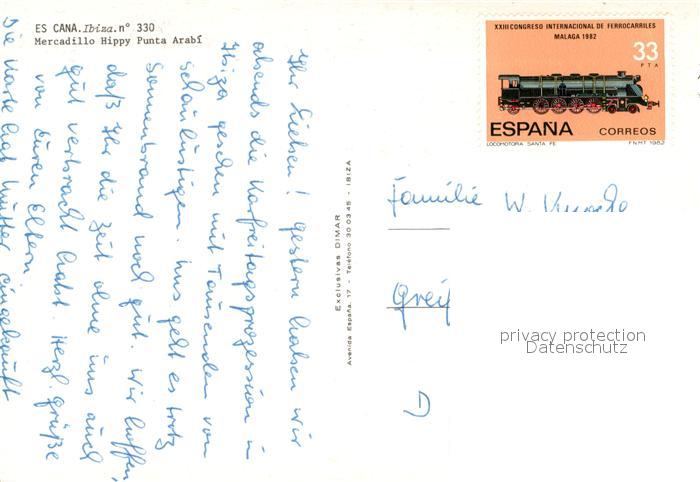 ES CANA.Ibiza.nº 330
Mercadillo Hippy Punta Arabí
Ihr Lieben! Gestern haben wir
abends die Karfreitagsprozession in
Ibiza gesehen mit Tausenden von
Schaulustigen. Uns geht es trotz
Sonnenbrand noch gut. Wir hoffen,
daß Ihr die Zeit ohne uns auch
gut verbracht habt. Herzl. Grüße
von Euren Eltern
Die Karte hat Mutter eingekauft
Exclusivas DIMAR
Avenida España, 17 - Teléfono 30 03 45 - IBIZA
XXIII CONGRESO INTERNACIONAL DE FERROCARRILES
MALAGA 1982
33
PTA
ESPAÑA CORREOS
LOCOMOTORA SANTA FE F.N.M.T. 1982
Familie W.
Greif
D
privacy protection
Datenschutz